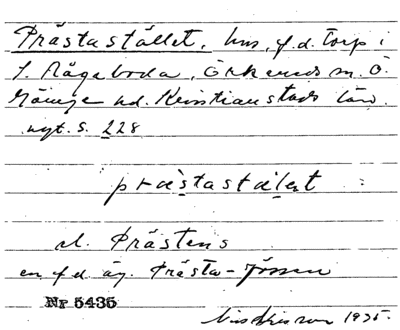 Prästastället, hus, f.d. torp i
S. Rågeboda, Örkeneds sn. Ö.
Göinge hd. Kristianstads län.
nyt. s. 228
præstastælet
al. Prästens
en f.d. äg. Prästa-Jössen
Nr 5435
1935.